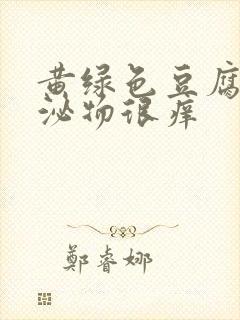 黄绿色豆腐
泌物很痒
鄭睿娜